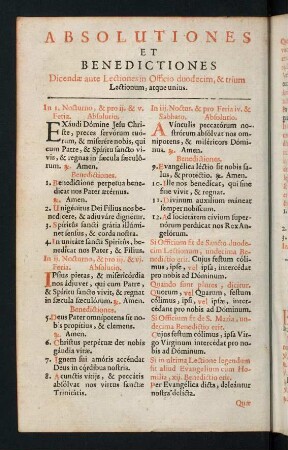 ABSOLUTIONES
ET
BENEDICTIONES
Dicendæ ante Lectiones in Officio duodecim, & trium
Lectionum, atque unius.
In 1. Nocturno, & pro ij. & v.
Feria. Absolutio.
EXáudi Dómine Jesu Chri-
ste, preces servórum tuó-
rum, & miserére nobis, qui
cum Patre, & Spíritu sancto vi-
vis, & regnas in sæcula sæculó-
rum. ℞. Amen.
Benedictiones.
1. Benedictióne perpétua bene-
dícat nos Pater ætérnus.
℞. Amen.
2. Unigénitus Dei Fílius nos bene-
dícere, & adjuváre dignétur.
3. Spíritus sancti grátia illúmi-
net sensus, & corda nostra.
4. In unitáte sancti Spíritus, be-
nedícat nos Pater, & Fílius.
In ij. Nocturno, & pro iij. & vj.
Feria. Absolutio.
IPsíus píetas, & misericórdia
nos ádjuvet, qui cum Patre,
& Spíritu sancto vivit, & regnat
in sæcula sæculórum. ℞. Amen.
Benedictiones.
5. Deus Pater omnípotens sit no-
bis propítius, & clemens.
℞. Amen.
6. Christus perpétuæ det nobis
gáudia vitæ.
7. Ignem sui amóris accéndat
Deus in córdibus nostris.
8. A cunctis vítiis, & peccátis
absólvat nos virtus sanctæ
Trinitátis.
In iij. Noctur. & pro Feria iv. &
Sabbato. Absolutio.
A Vínculis peccatórum no-
strórum absólvat nos om-
nípotens, & miséricors Dómi-
nus. ℞. Amen.
Benedictiones.
9. Evangélica léctio sit nobis sa-
lus, & protéctio. ℞. Amen.
10. Ille nos benedícat, qui sine
fine vivit, & regnat.
11. Divínum auxílium máneat
semper nobíscum.
12. Ad societátem cívium super-
nórum perdúcat nos Rex An-
gelórum.
Si Officium fit de Sancto duode-
cim Lectionum, undecima Be-
nedictio erit. Cujus festum có-
limus, ipse, vel ipsa, intercédat
pro nobis ad Dóminum.
Quando sunt plures, dicitur,
Quorum, vel Quarum, festum
cólimus, ipsi, vel ipsæ, intercé-
dant pro nobis ad Dóminum.
Si Officium fit de S. Maria, un-
decima Benedictio erit.
Cujus festum cólimus, ipsa Vir-
go Vírginum intercédat pro no-
bis ad Dóminum.
Si in ultima Lectione legendum
sit aliud Evangelium cum Ho-
milia, xij. Benedictio erit.
Per Evangélica dicta, deleántur
nostra delícta.
Quæ